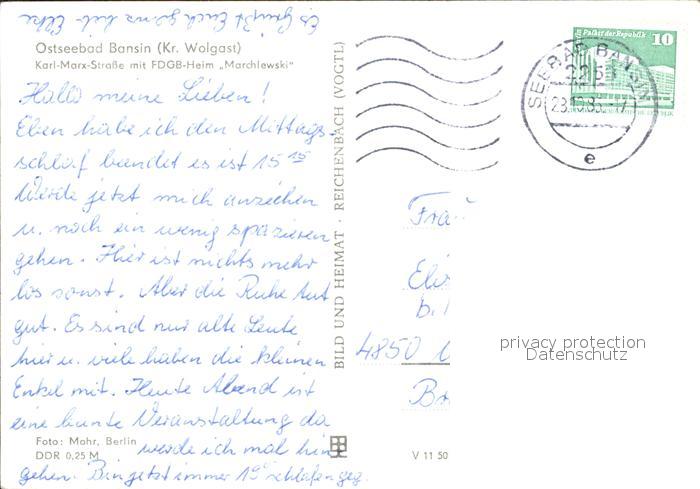 Es grüßt Euch ganz lieb Elke
Ostseebad Bansin (Kr. Wolgast)
Karl-Marx-Straße mit FDGB-Heim „Marchlewski"
Hallo meine Lieben!
Eben habe ich den Mittags-
schlaf beendet es ist 15 15
Werde jetzt mich anziehen
u. noch ein wenig spazieren
gehen. Hier ist nichts mehr
los sonst. Aber die Ruhe tut
gut. Es sind nur alte Leute
hier u. viele haben die kleinen
Enkel mit. Heute Abend ist
eine bunte Veranstaltung da
werde ich mal hin
gehen. Bin jetzt immer 19 schlafen geg.
Foto: Mahr, Berlin
DDR 0,25 M
BILD UND HEIMAT · REICHENBACH (VOGTL)
V 11 50
Palast der Republik 10
SEEBAD BANSIN
2255
e
Frau
b.
4850
privacy protection
Datenschutz